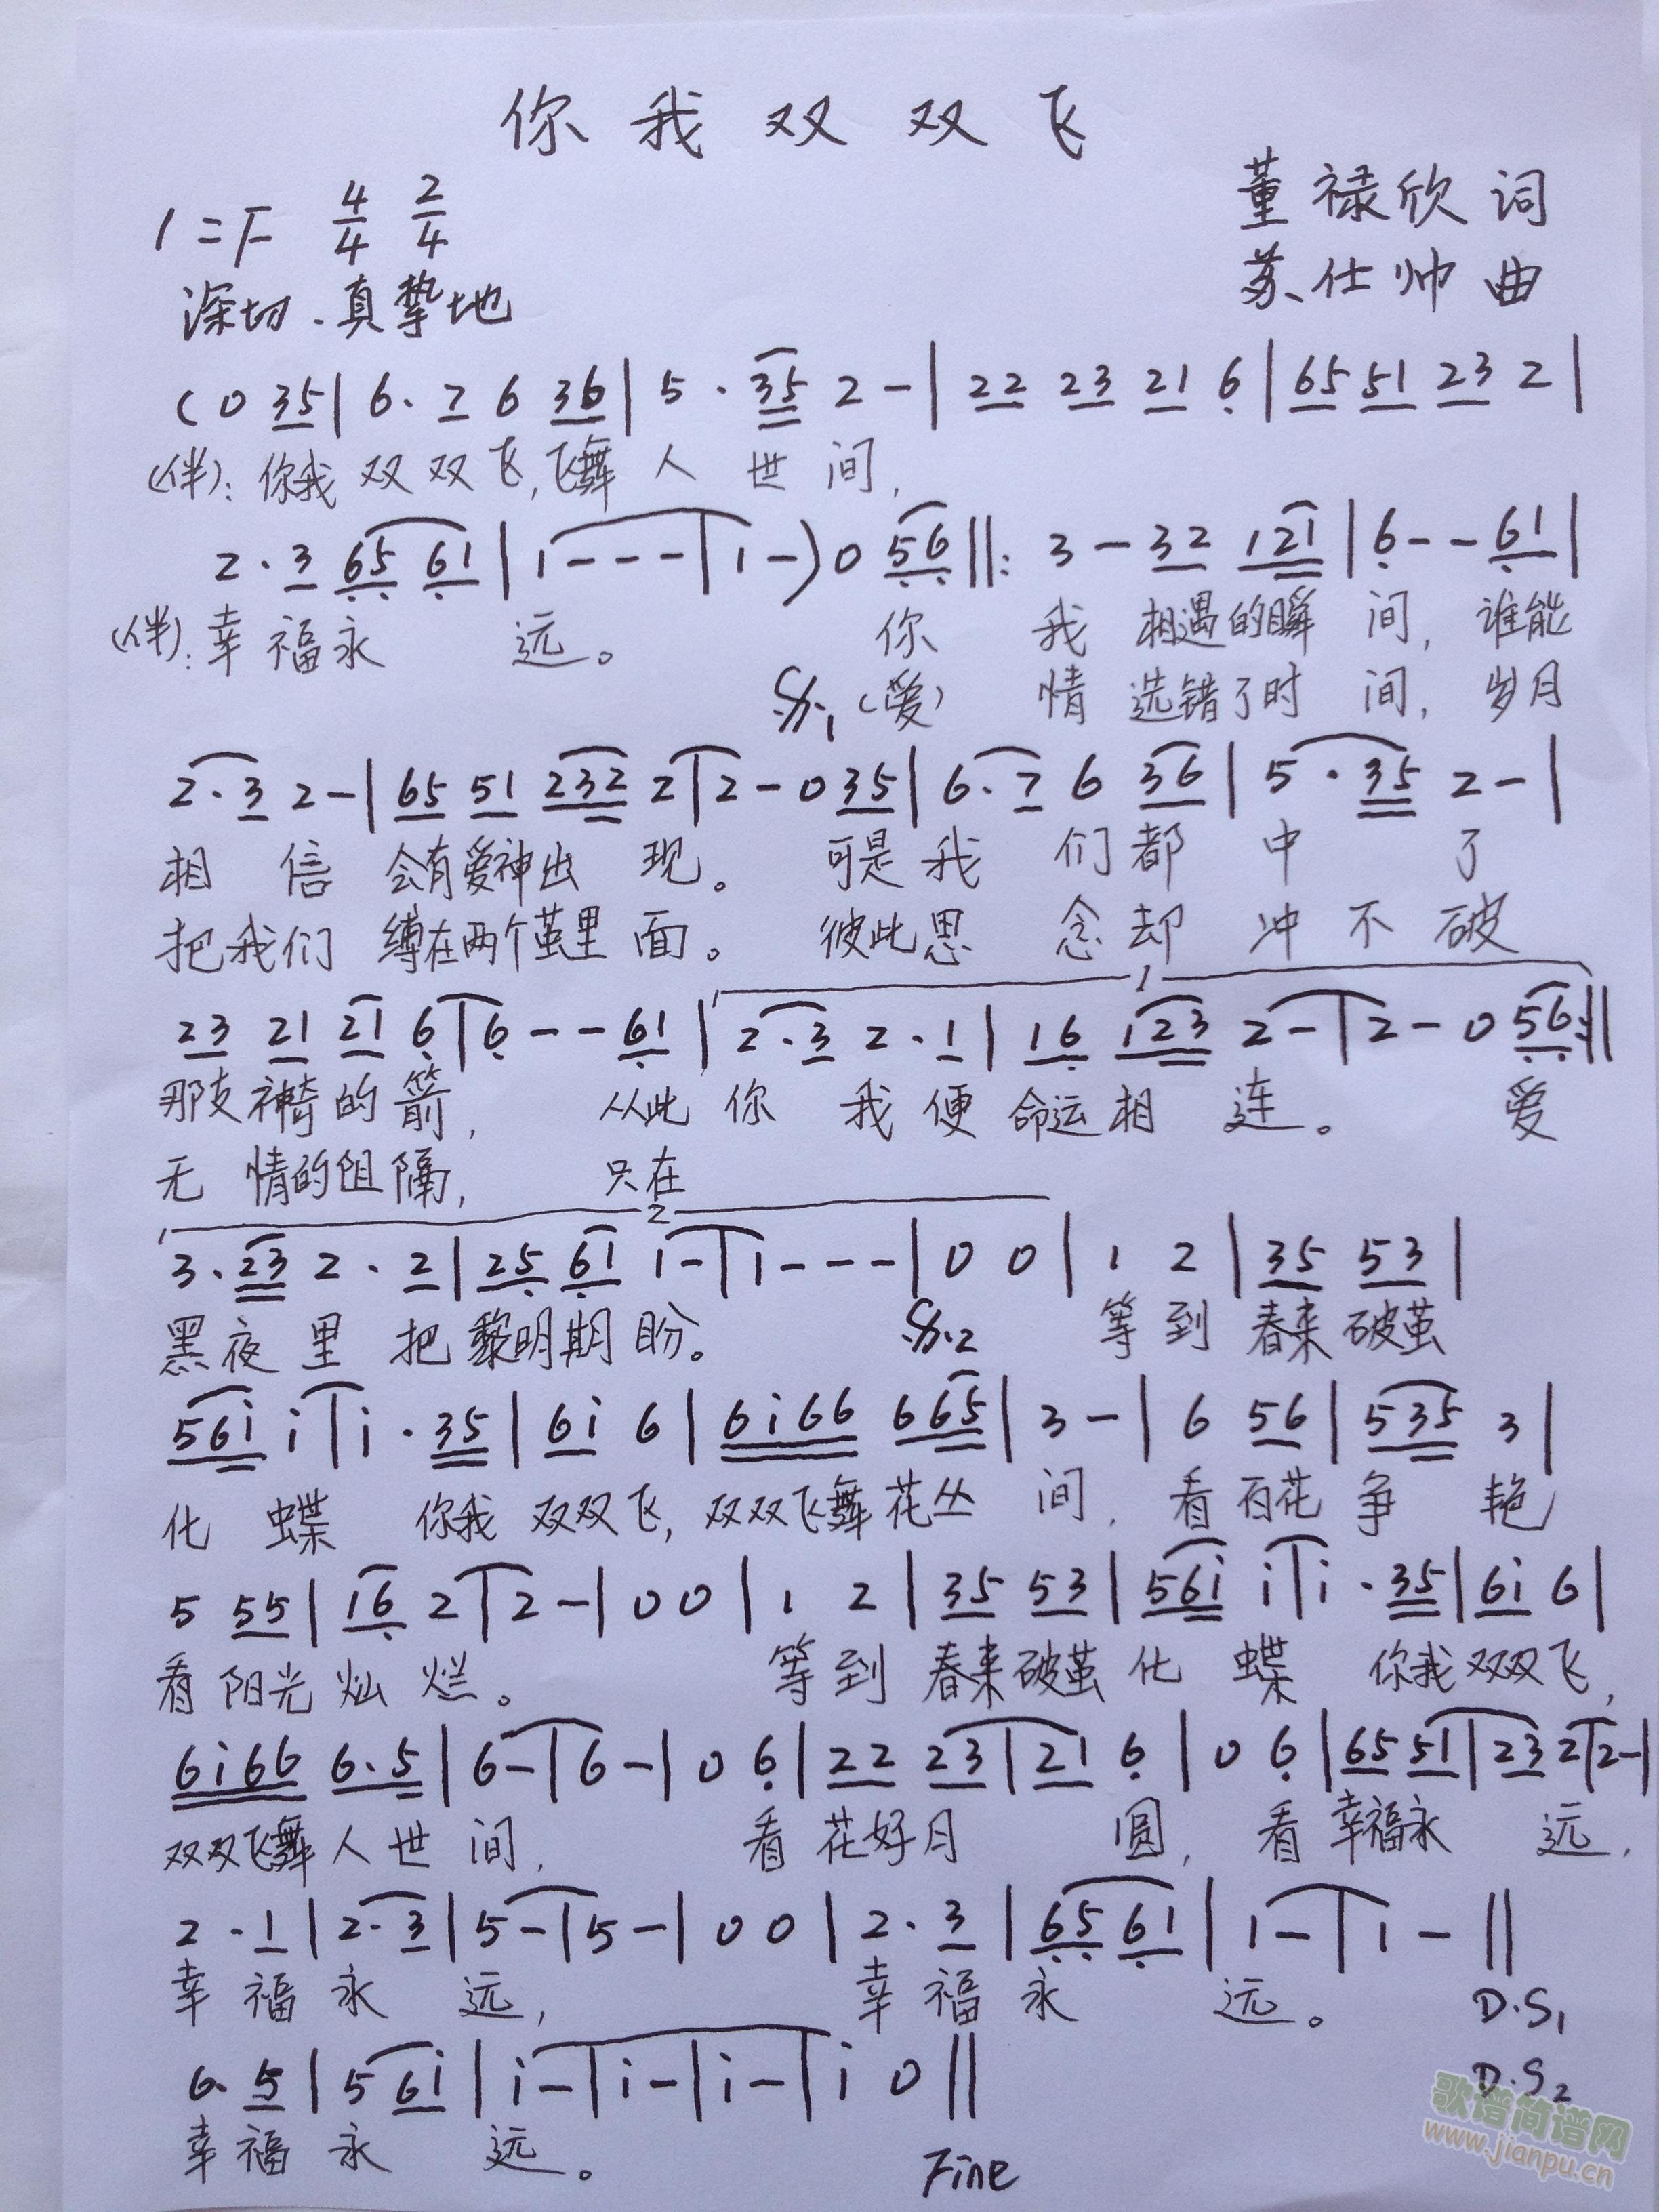 你我双双飞
1=F 4/4 2/4
董禄欣 词
深切、真挚地
苏仕帅 曲
(0 35| 6. 7 6 36| 5 . 35 2 -| 22 23 21 6| 65 51 23 2|
(伴): 你我双双飞,飞舞人世间,
2. 3 65 61| 1 - - - | 1 -) 0 56 ||: 3 - 32 121| 6 - - 61|
(伴): 幸福永远。 你 我 相遇的瞬间, 谁能
𝄋1 (爱) 情 选错了时间, 岁月
2. 3 2 -| 65 51 232 2| 2 - 0 35| 6. 7 6 36| 5 . 35 2 -|
相 信 会有爱神出现。 可是我 们都 中 了
把我们 缚在两个茧里面。 彼此思 念却 冲不破
1
23 21 21 6| 6 - - 61| 2. 3 2. 1| 16 123 2 -| 2 - 0 56 :||
那支神奇的箭, 从此你 我便命运相连。 爱
无情的阻隔, 只在
2
3. 23 2. 2| 25 61 1 -| 1 - - -| 0 0| 1 2| 35 53|
黑夜里把黎明期盼。 𝄋2 等到春来破茧
56i i| i. 35| 6i 6| 6i66 665| 3 -| 6 56| 535 3|
化蝶 你我双双飞, 双双飞舞花丛间, 看百花争艳
5 55| 16 2| 2 -| 0 0| 1 2| 35 53| 56i i| i. 35| 6i 6|
看阳光灿烂。 等到春来破茧化蝶 你我双双飞,
6i66 6.5| 6 -| 6 -| 0 6| 22 23| 21 6| 0 6| 65 51| 23 2| 2 -|
双双飞舞人世间, 看花好月圆, 看幸福永远,
2 . 1| 2. 3| 5 -| 5 -| 0 0| 2. 3| 65 61| 1 -| 1 - ||
幸福永远, 幸福永远。 D.S1
6. 5| 5 6i| i -| i -| i -| i 0 ||
D.S2
幸福永远。
Fine
歌谱简谱网
www.jianpu.cn